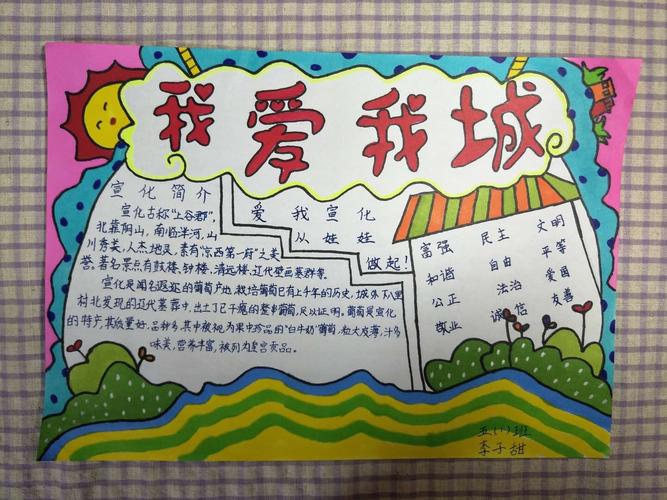 我爱我城
宣化简介
宣化古称“上谷郡”,
北靠阴山,南临洋河,山
川秀美,人杰地灵,素有“京西第一府”之美
誉。著名景点有鼓楼、钟楼、清远楼、辽代壁画墓群等.
宣化是闻名遐迩的葡萄产地,栽培葡萄已有上千年的历史,城外下八里
村北发现的辽代墓葬中,出土了已干瘪的整串葡萄,足以证明。葡萄是宣化
的特产,其质量好,品种多,其中被视为果中珍品的“白牛奶”葡萄,粒大皮薄,汁多
味美,营养丰富,被列为皇宫贡品。
爱我宣化
从娃娃
做起!
富强 民主 文明
和谐 自由 平等
公正 法治 爱国
敬业 诚信 友善
五(1)班
李子甜